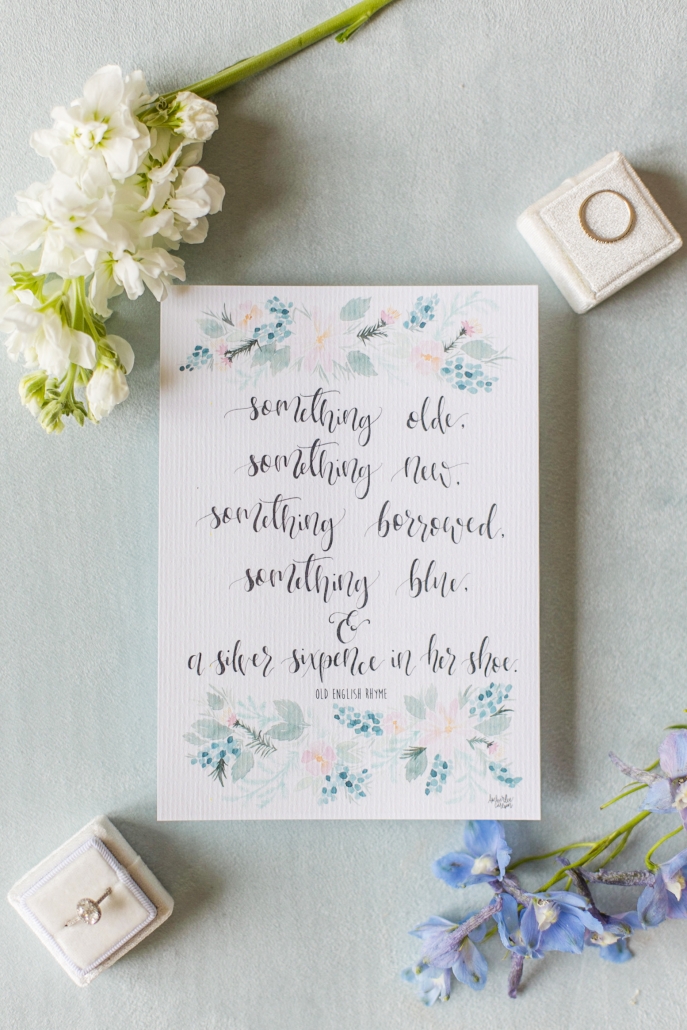 something olde,
something new,
something borrowed,
something blue,
&
a silver sixpence in her shoe.
OLD ENGLISH RHYME